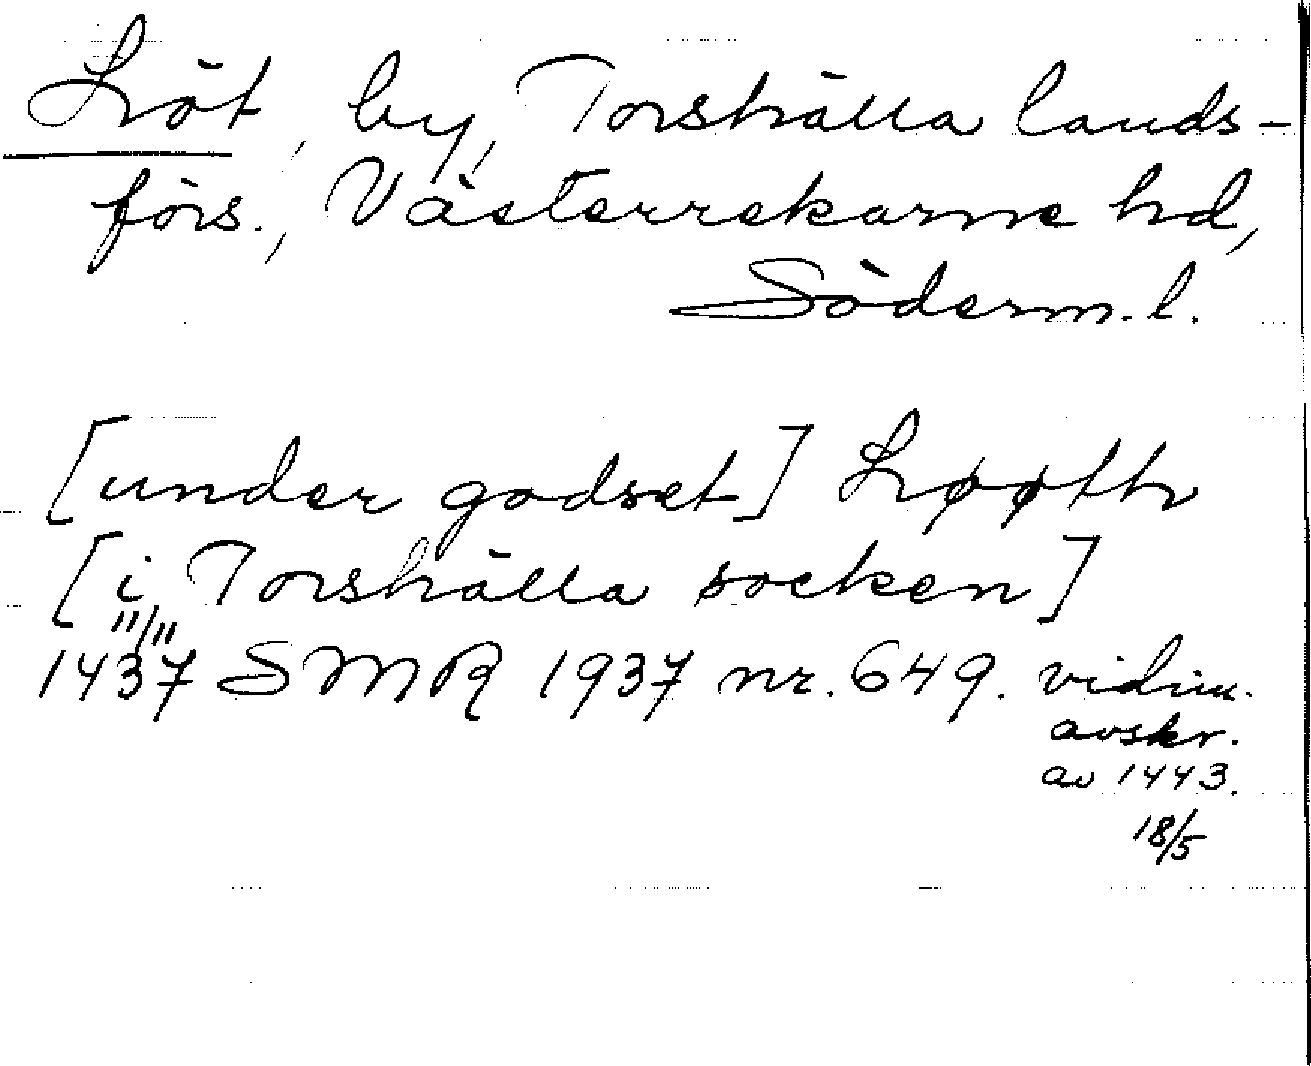 Löt, by, Torshälla lands-
förs., Västerrekarne hd,
Söderm. l.
[under godset] Løøth
[i Torshälla socken]
11/11
1437 SMR 1937 nr. 649. vidim.
avskr.
av 1443.
18/5